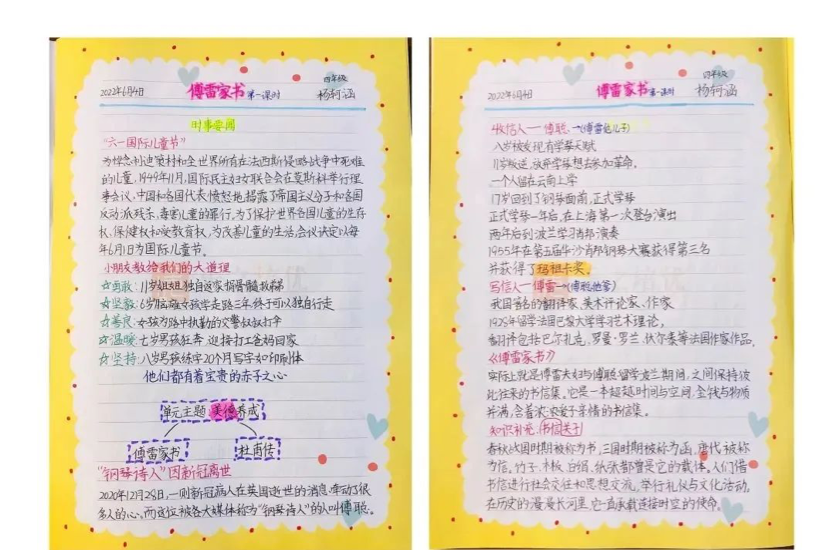 2022年6月4日
傅雷家书 第一课时
四年级
杨轲涵
时事要闻
"六一国际儿童节"
为悼念利迪策村和全世界所有在法西斯侵略战争中死难
的儿童，1949年11月，国际民主妇女联合会在莫斯科举行理
事会议，中国和各国代表愤怒地揭露了帝国主义分子和各国
反动派残杀、毒害儿童的罪行。为了保护世界各国儿童的生存
权、保健权和受教育权，为改善儿童的生活，会议决定以每
年6月1日为国际儿童节。
小朋友教给我们的大道理
☆勇敢：11岁姐姐独自返家捐骨髓救弟
☆坚毅：6岁脑瘫女孩学走路三年,终于可以独自行走
☆善良：女孩为路中执勤的交警叔叔打伞
☆温暖：七岁男孩狂奔 迎接打工爸妈回家
☆坚持：八岁男孩练字20个月写字如印刷体
他们都有着宝贵的赤子之心
单元主题 美德养成
傅雷家书
杜甫传
"钢琴诗人"因新冠离世
2020年12月28日，一则新冠病人在英国逝世的消息，牵动了很
多人的心。而这位被各大媒体称为"钢琴诗人"的人叫傅聪。
2022年6月4日
傅雷家书 第一课时
四年级
杨轲涵
收信人——傅聪 →(傅雷他儿子)
八岁被发现有学琴天赋
11岁叛逆，放弃学琴想去参加革命。
一个人留在云南上学
17岁回到了钢琴面前，正式学琴
正式学琴一年后，在上海第一次登台演出
两年后到波兰学习肖邦演奏
1955年在第五届华沙肖邦钢琴大赛获得第三名
并获得了玛祖卡奖。
写信人——傅雷→(傅聪他爹)
我国著名的翻译家、美术评论家、作家
留学法国巴黎大学学习艺术理论，
翻译包括巴尔扎克，罗曼·罗兰，伏尔泰等法国作家作品。
《傅雷家书》
实际上就是傅雷夫妇与傅聪留学波兰期间，之间保持彼
此往来的书信集。它是一本超越时间与空间，金钱与物质
并满含着浓浓爱子亲情的书信集。
知识补充：书信
春秋战国时期被称为书，三国时期被称为函，唐代被称
为信。竹子、木板、白绢、纸张都曾是它的载体。人们借
书信进行社会交往和思想交流，举行礼仪与文化活动，
在历史的漫漫长河里，它一直承载连接时空的使命。